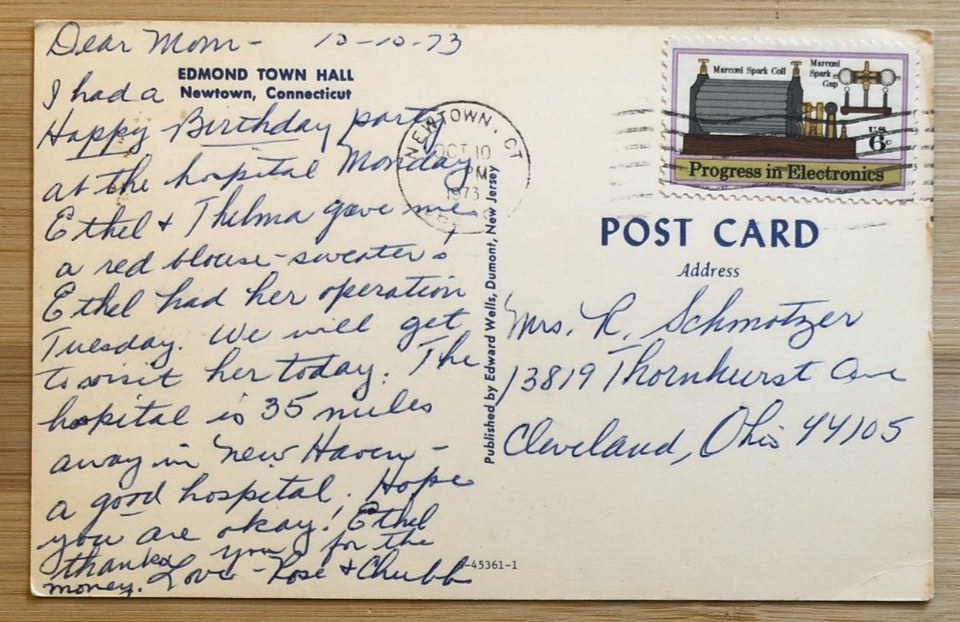 Dear Mom- 10-10-73
EDMOND TOWN HALL
Newtown, Connecticut
I had a
Happy Birthday party
at the hospital Monday.
Ethel & Thelma gave me
a red blouse-sweater!
Ethel had her operation
Tuesday. We will get
to visit her today. The
hospital is 35 miles
away in New Haven -
a good hospital. Hope
you are okay! Ethel
thanks you for the
money. Love - Rose & Chubb
-45361-1
Published by Edward Wells, Dumont, New Jersey
NEWTOWN, CT
OCT 10
PM
1973
Marconi Spark Coil
Marconi
Spark
Gap
U.S.
6c
Progress in Electronics
POST CARD
Address
Mrs. R. Schmotzer
13819 Thornhurst Ave
Cleveland, Ohio 44105